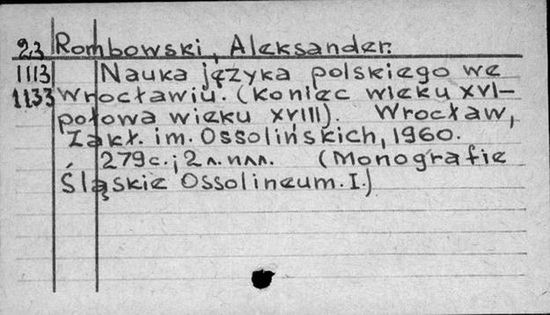 23 Rombowski, Aleksander.
1113 Nauka języka polskiego we
1133 Wrocławiu. (Koniec wieku XVI-
połowa wieku XVIII). Wrocław,
Zakł. im. Ossolińskich, 1960.
279 с.; 2 л. илл. (Monografie
Śląskie Ossolineum. I.)